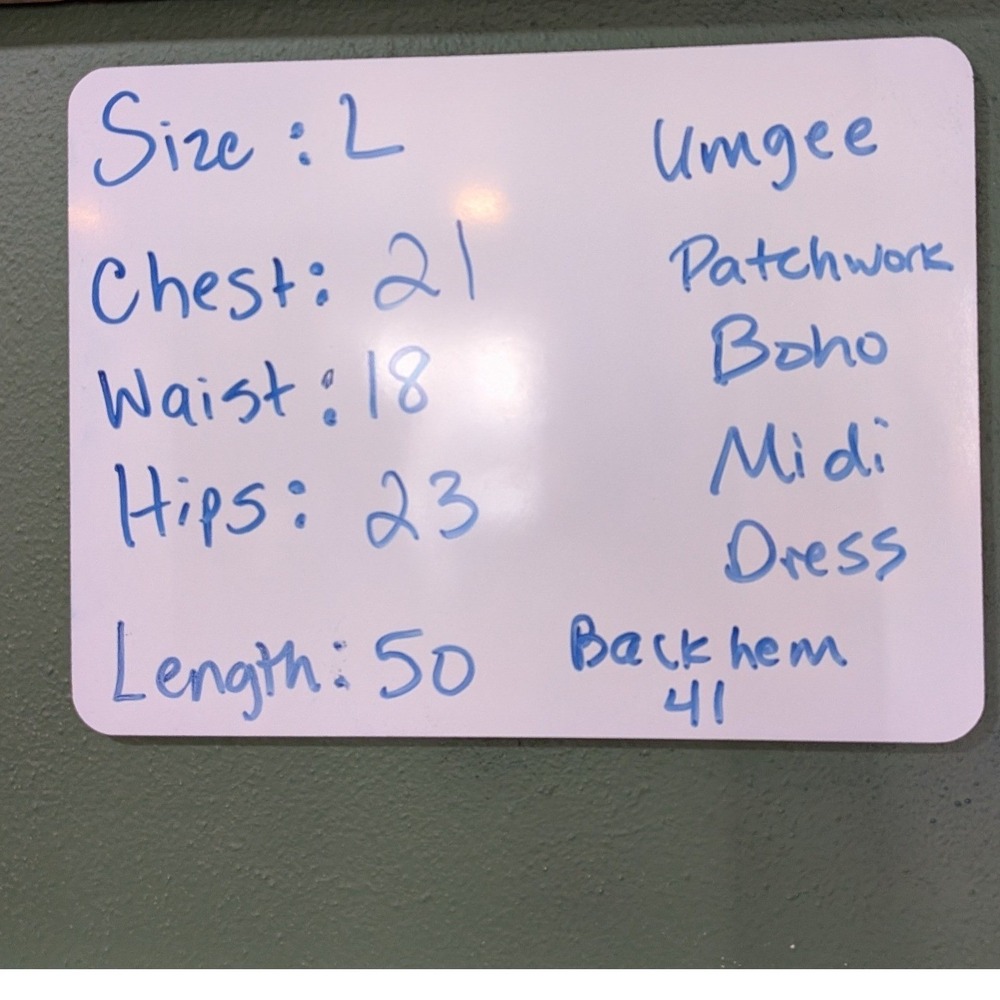 Size: L
Chest: 21
Waist: 18
Hips: 23
Length: 50
Umgee
Patchwork
Boho
Midi
Dress
Back hem
41